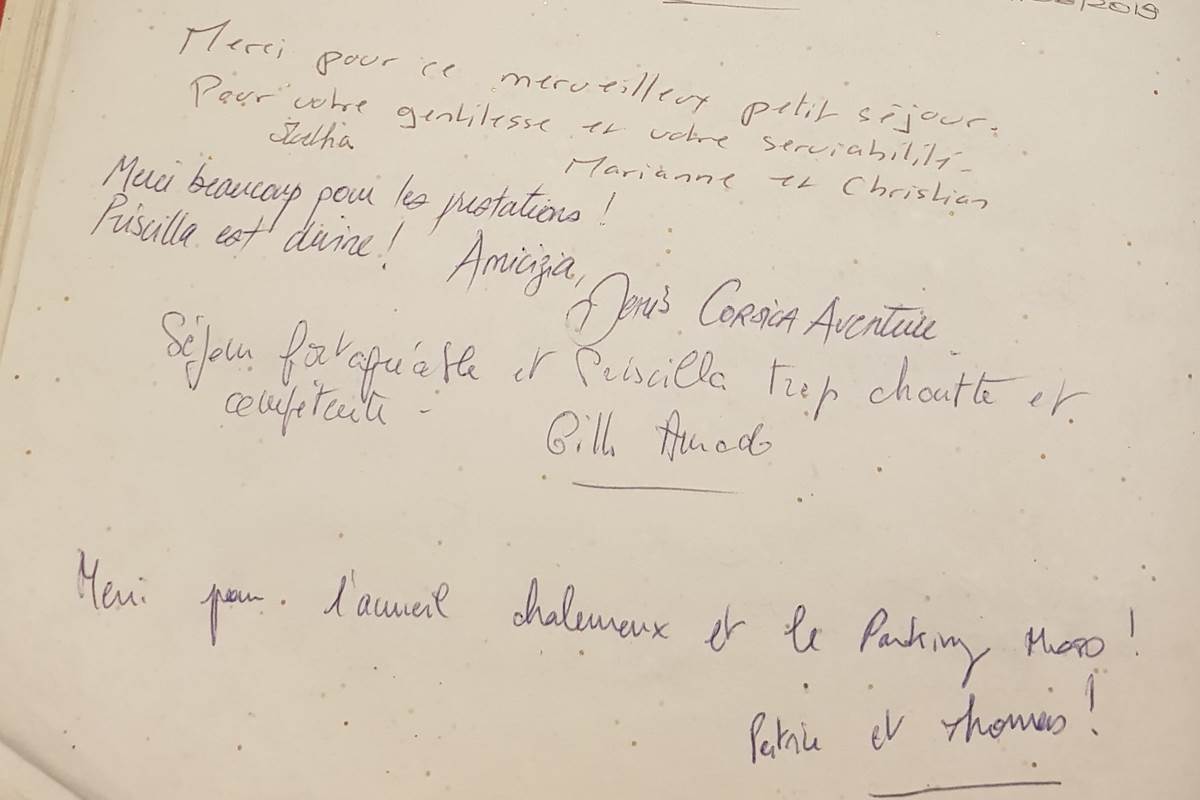 /2019
Merci pour ce merveilleux petit séjour.
Pour votre gentilesse et votre serviabilité.
Marianne et Christian
Merci beaucoup pour les prestations !
Priscilla est divine ! Amicizia,
Denis CORSICA AVENTURE
Séjour fort agréable et Priscilla trop choutte et
compétente -
Merci pour l'accueil chaleureux et le Parking moto !
Patrice et Thomas !